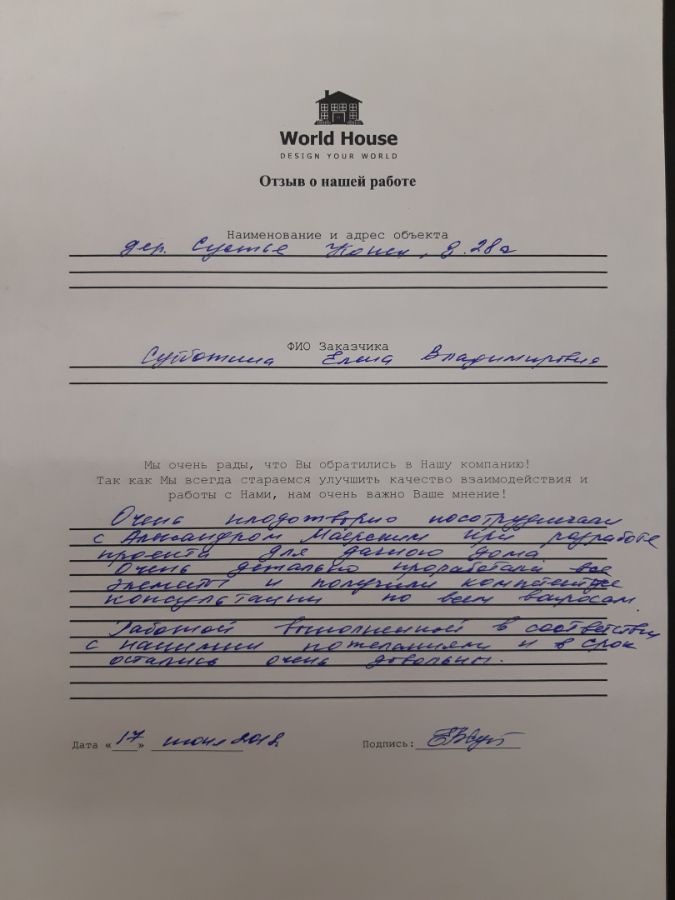 World House
DESIGN YOUR WORLD
Отзыв о нашей работе
Наименование и адрес объекта
дер. Сустье Конец, д. 28а
ФИО Заказчика
Субботина Елена Владимировна
Мы очень рады, что Вы обратились в Нашу компанию!
Так как Мы всегда стараемся улучшить качество взаимодействия и
работы с Нами, нам очень важно Ваше мнение!
Очень плодотворно посотрудничали
с Александром Маерским при разработке
проекта для данного дома
Очень детально проработали все
элементы и получили компетентные
консультации по всем вопросам.
Работой выполненной в соответствии
с нашими пожеланиями и в срок
остались очень довольны.
Дата «17» июня 2018 Подпись: